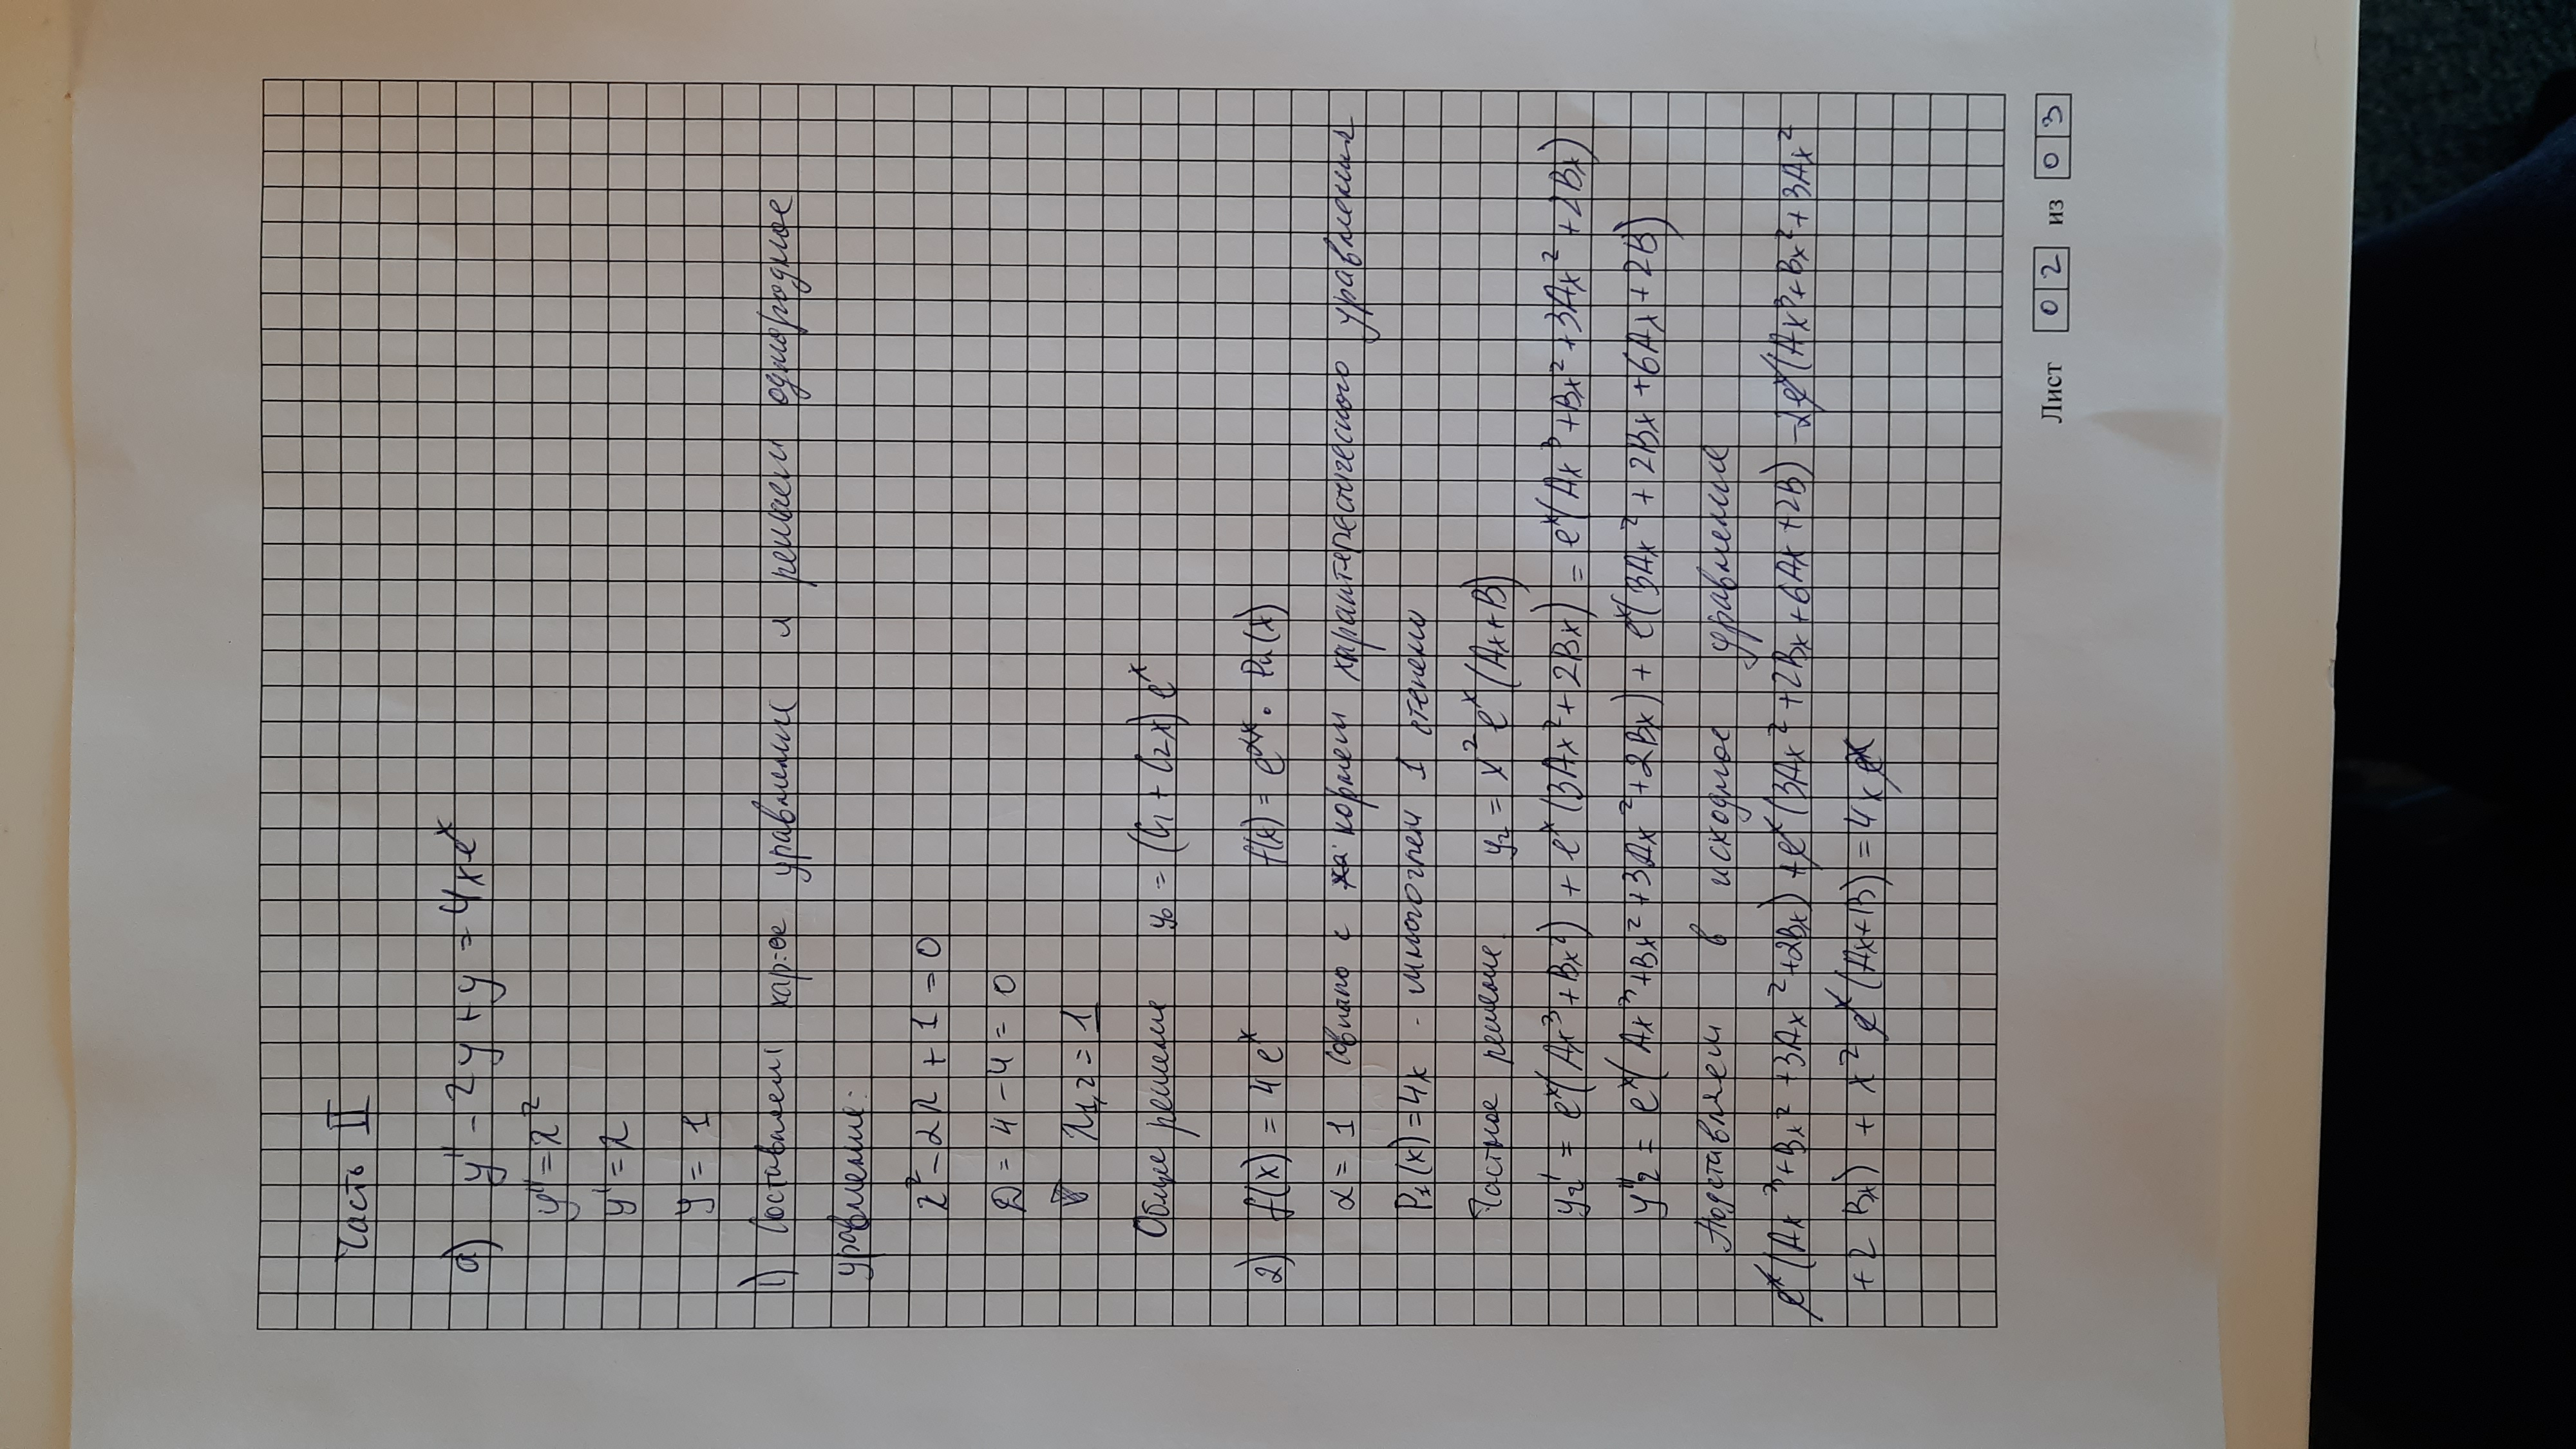 Часть II
а) y'' - 2y + y = 4xe^x
y'' = λ^2
y' = λ
y = 1
1) Составляем хар-ое уравнение и решаем однородное
уравнение:
λ^2 - 2λ + 1 = 0
D = 4 - 4 = 0
λ1,2 = 1
Общее решение y0 = (C1 + C2x) e^x
2) f(x) = 4e^x f(x) = e^αx · Pn(x)
α = 1 совпало с корнем характерестического уравнения
P1(x) = 4x - многочлен 1 степени
Частное решение y2 = x^2 e^x (Ax+B)
y2' = e^x(Ax^3+Bx^2) + e^x(3Ax^2+2Bx) = e^x(Ax^3+Bx^2+3Ax^2+2Bx)
y''2 = e^x(Ax^3+Bx^2+3Ax^2+2Bx) + e^x(3Ax^2+2Bx+6Ax+2B)
Подставляем в исходное уравнение
e^x(Ax^3+Bx^2+3Ax^2+2Bx) + e^x(3Ax^2+2Bx+6Ax+2B) - 2e^x(Ax^3+Bx^2+3Ax^2
+2Bx) + x^2 e^x(Ax+B) = 4x e^x
Лист 02 из 03